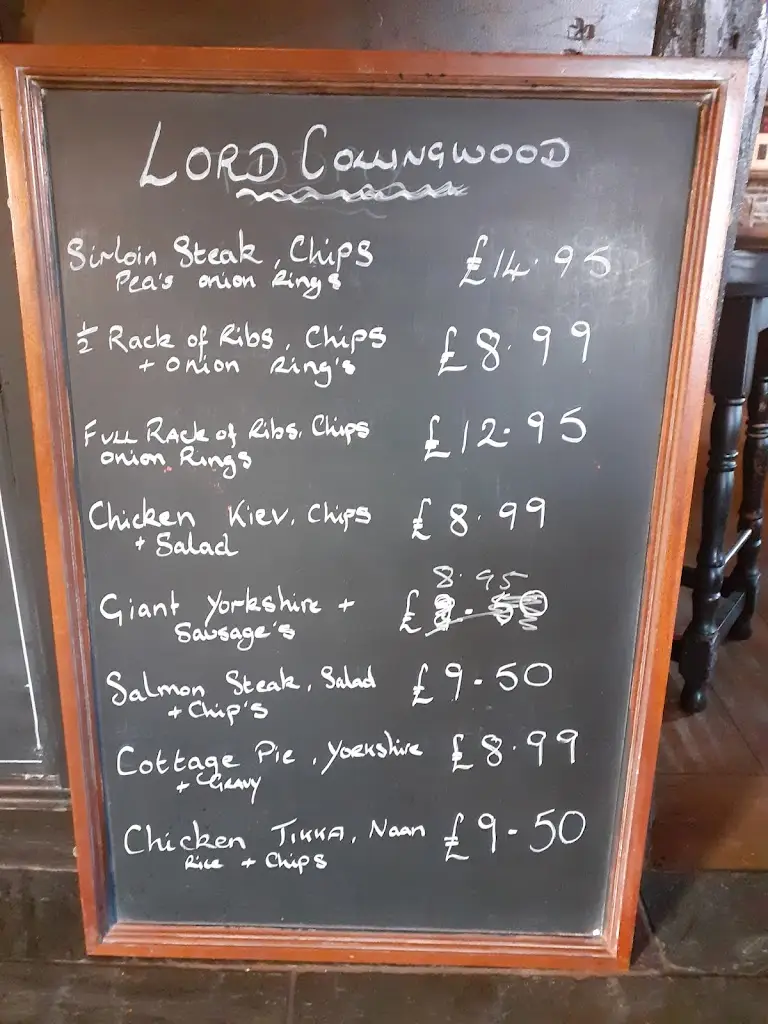 LORD COLLINGWOOD
Sirloin Steak, Chips £14.95
Pea's onion Rings
½ Rack of Ribs, Chips £8.99
+ Onion Ring's
FULL RACK of Ribs, Chips £12.95
onion Rings
Chicken Kiev, Chips £8.99
+ Salad
8.95
Giant Yorkshire + £
Sausage's
Salmon Steak, Salad £9.50
+ Chip's
Cottage Pie, Yorkshire £8.99
+ GRAVY
Chicken TIKKA, Naan £9.50
Rice + Chips